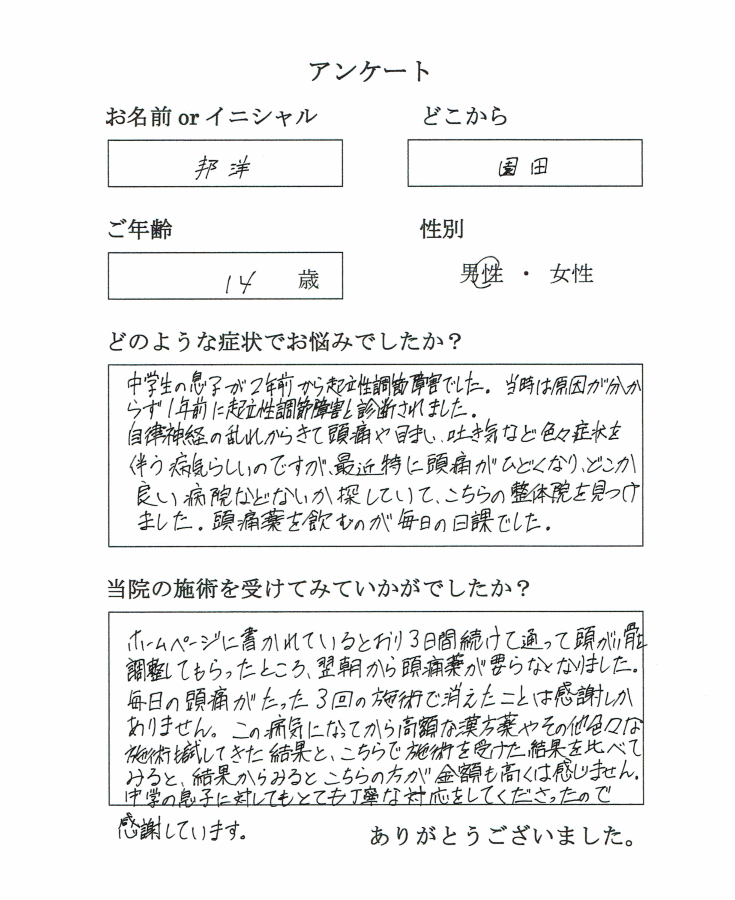 アンケート
お名前 or イニシャル どこから
邦洋 園田
ご年齢 性別
14 歳 男性 ・ 女性
どのような症状でお悩みでしたか?
中学生の息子が2年前から起立性調節障害でした。当時は原因が分か
らず1年前に起立性調節障害と診断されました。
自律神経の乱れからきて頭痛や目まい、吐き気など色々症状を
伴う病気らしいのですが、最近特に頭痛がひどくなり、どこか
良い病院などないか探していて、こちらの整体院を見つけ
ました。頭痛薬を飲むのが毎日の日課でした。
当院の施術を受けてみていかがでしたか?
ホームページに書かれているとおり3日間続けて通って頭がい骨
調整してもらったところ、翌朝から頭痛薬が要らなくなりました。
毎日の頭痛がたった3回の施術で消えたことは感謝しか
ありません。この病気になってから高額な漢方薬やその他色々な
施術も試してきた結果と、こちらで施術を受けた結果を比べて
みると、結果からみるとこちらの方が金額も高くは感じません。
中学の息子に対してもとても丁寧な対応をしてくださったので
感謝しています。
ありがとうございました。